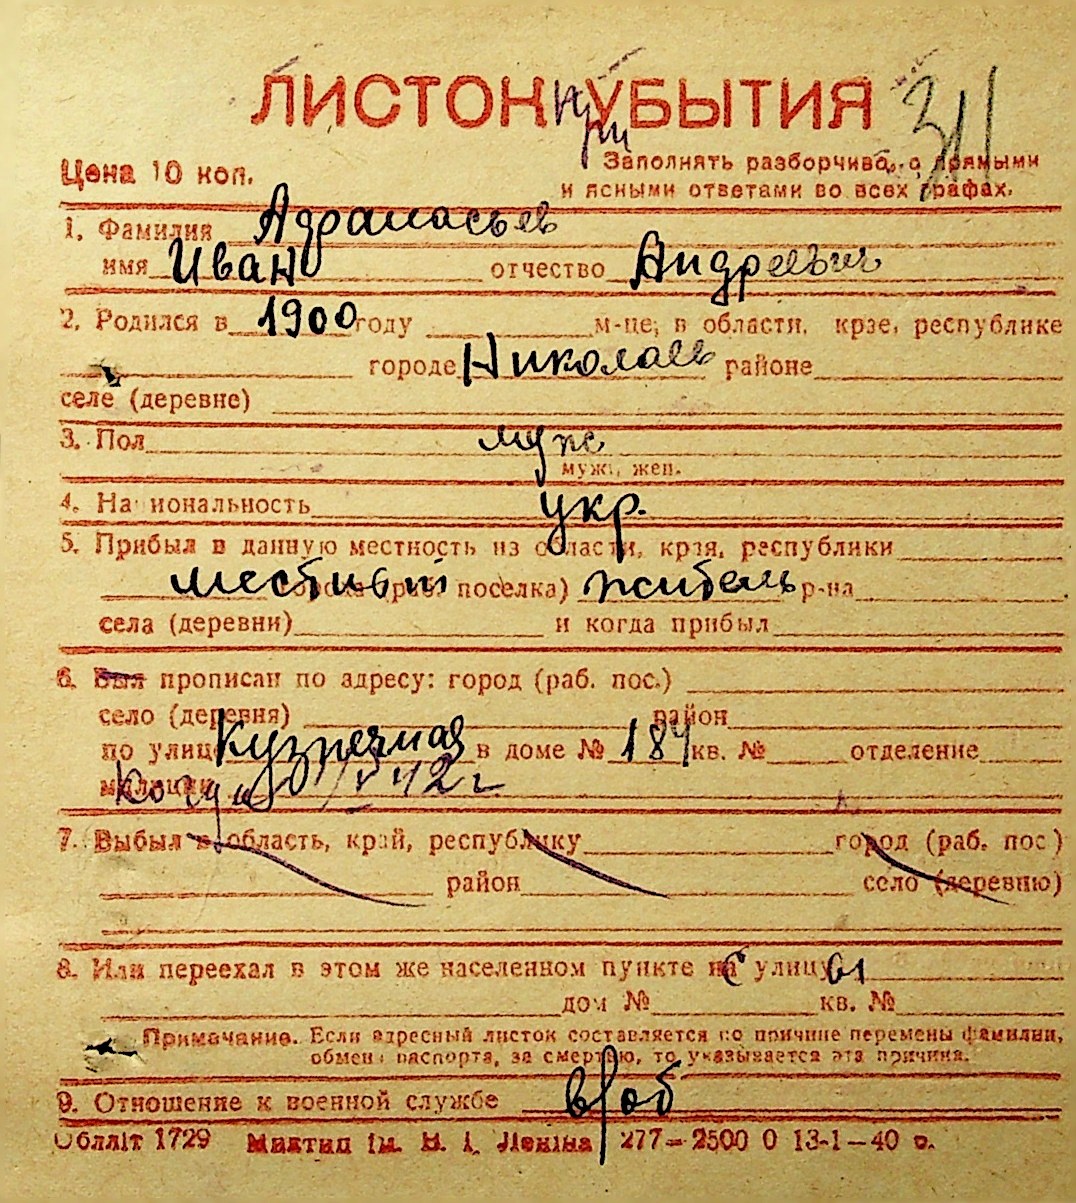 ЛИСТОК при УБЫТИЯ 311
Цена 10 коп.
Заполнять разборчиво, прямыми
и ясными ответами во всех графах.
1. Фамилия Афанасьев
имя Иван отчество Андреевич
2. Родился в 1900 году м-це, в области, крае, республике
городе Николаев районе
селе (деревне)
3. Пол муж
муж., жен.
4. Национальность укр.
5. Прибыл в данную местность из области, края, республики
местный поселка) житель р-на
села (деревни) и когда прибыл
6. Был прописан по адресу: город (раб. пос.)
село (деревня) район
по улице Кузнечная в доме № 184 кв. № отделение
милиции Когда 42 г
7. Выбыл в область, край, республику город (раб. пос)
район село (деревню)
8. Или переехал в этом же населенном пункте на улицу
дом № кв. №
Примечание. Если адресный листок составляется по причине перемены фамилии,
обмена паспорта, за смертью, то указывается эта причина.
9. Отношение к военной службе в/об
Обллiт 1729 Миктип iм. В. I. Ленiна 277—2500 0 13-1—40 р.